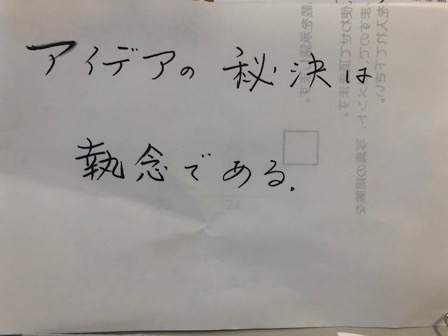 アイデアの秘決は
執念である.